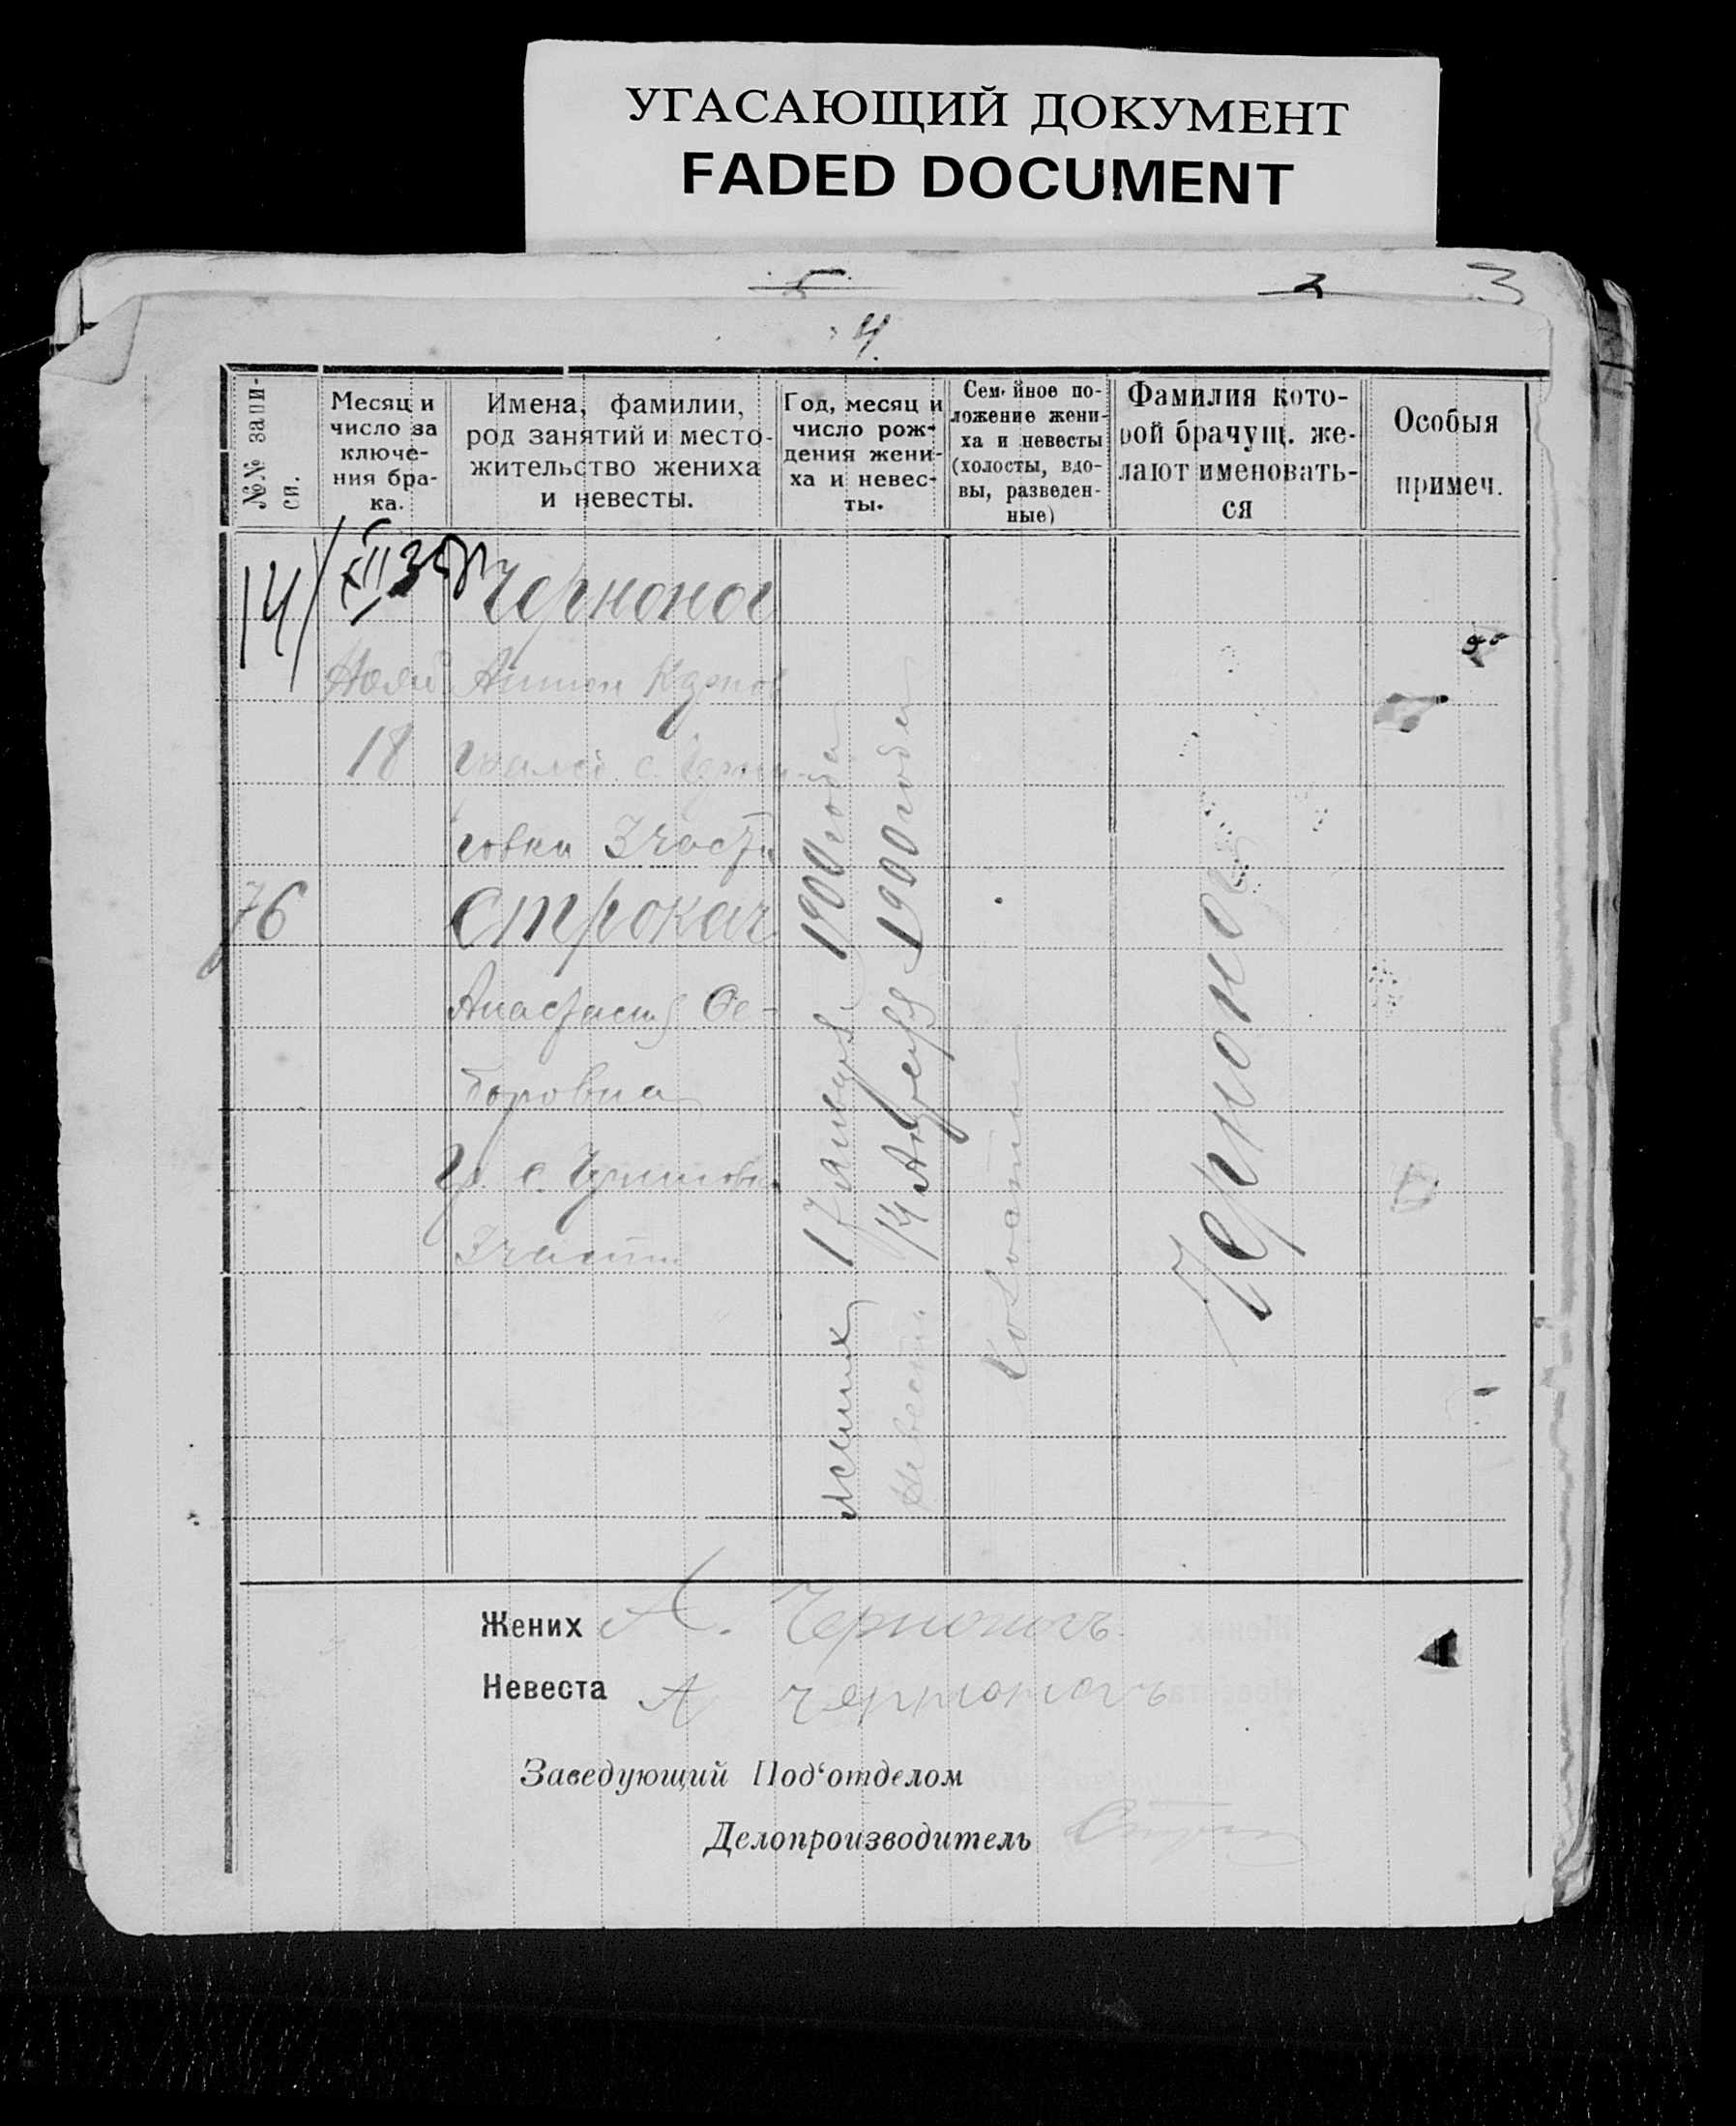 УГАСАЮЩИЙ ДОКУМЕНТ
FADED DOCUMENT
5 2 3
4.
№№ запи-
си.
Месяц и
число за
ключе-
ния бра-
ка.
Имена, фамилии,
род занятий и место-
жительство жениха
и невесты.
Год, месяц и
число рож-
дения жени-
ха и невес-
ты.
Семейное по-
ложение жени-
ха и невесты
(холосты, вдо-
вы, разведен-
ные)
Фамилия кото-
рой брачущ. же-
лают именовать-
ся
Особыя
примеч.
14/
XII
Черноног
18
с.
говки 3 части
76
Строкач
Анастасия Фе-
доровна
Гр. с.
3 части
жених 17 января 1900 года
невеста 14 1900 года
Черноног
Жених А. Черноногъ
Невеста А Черноногъ
Заведующий Под'отделом
Делопроизводитель